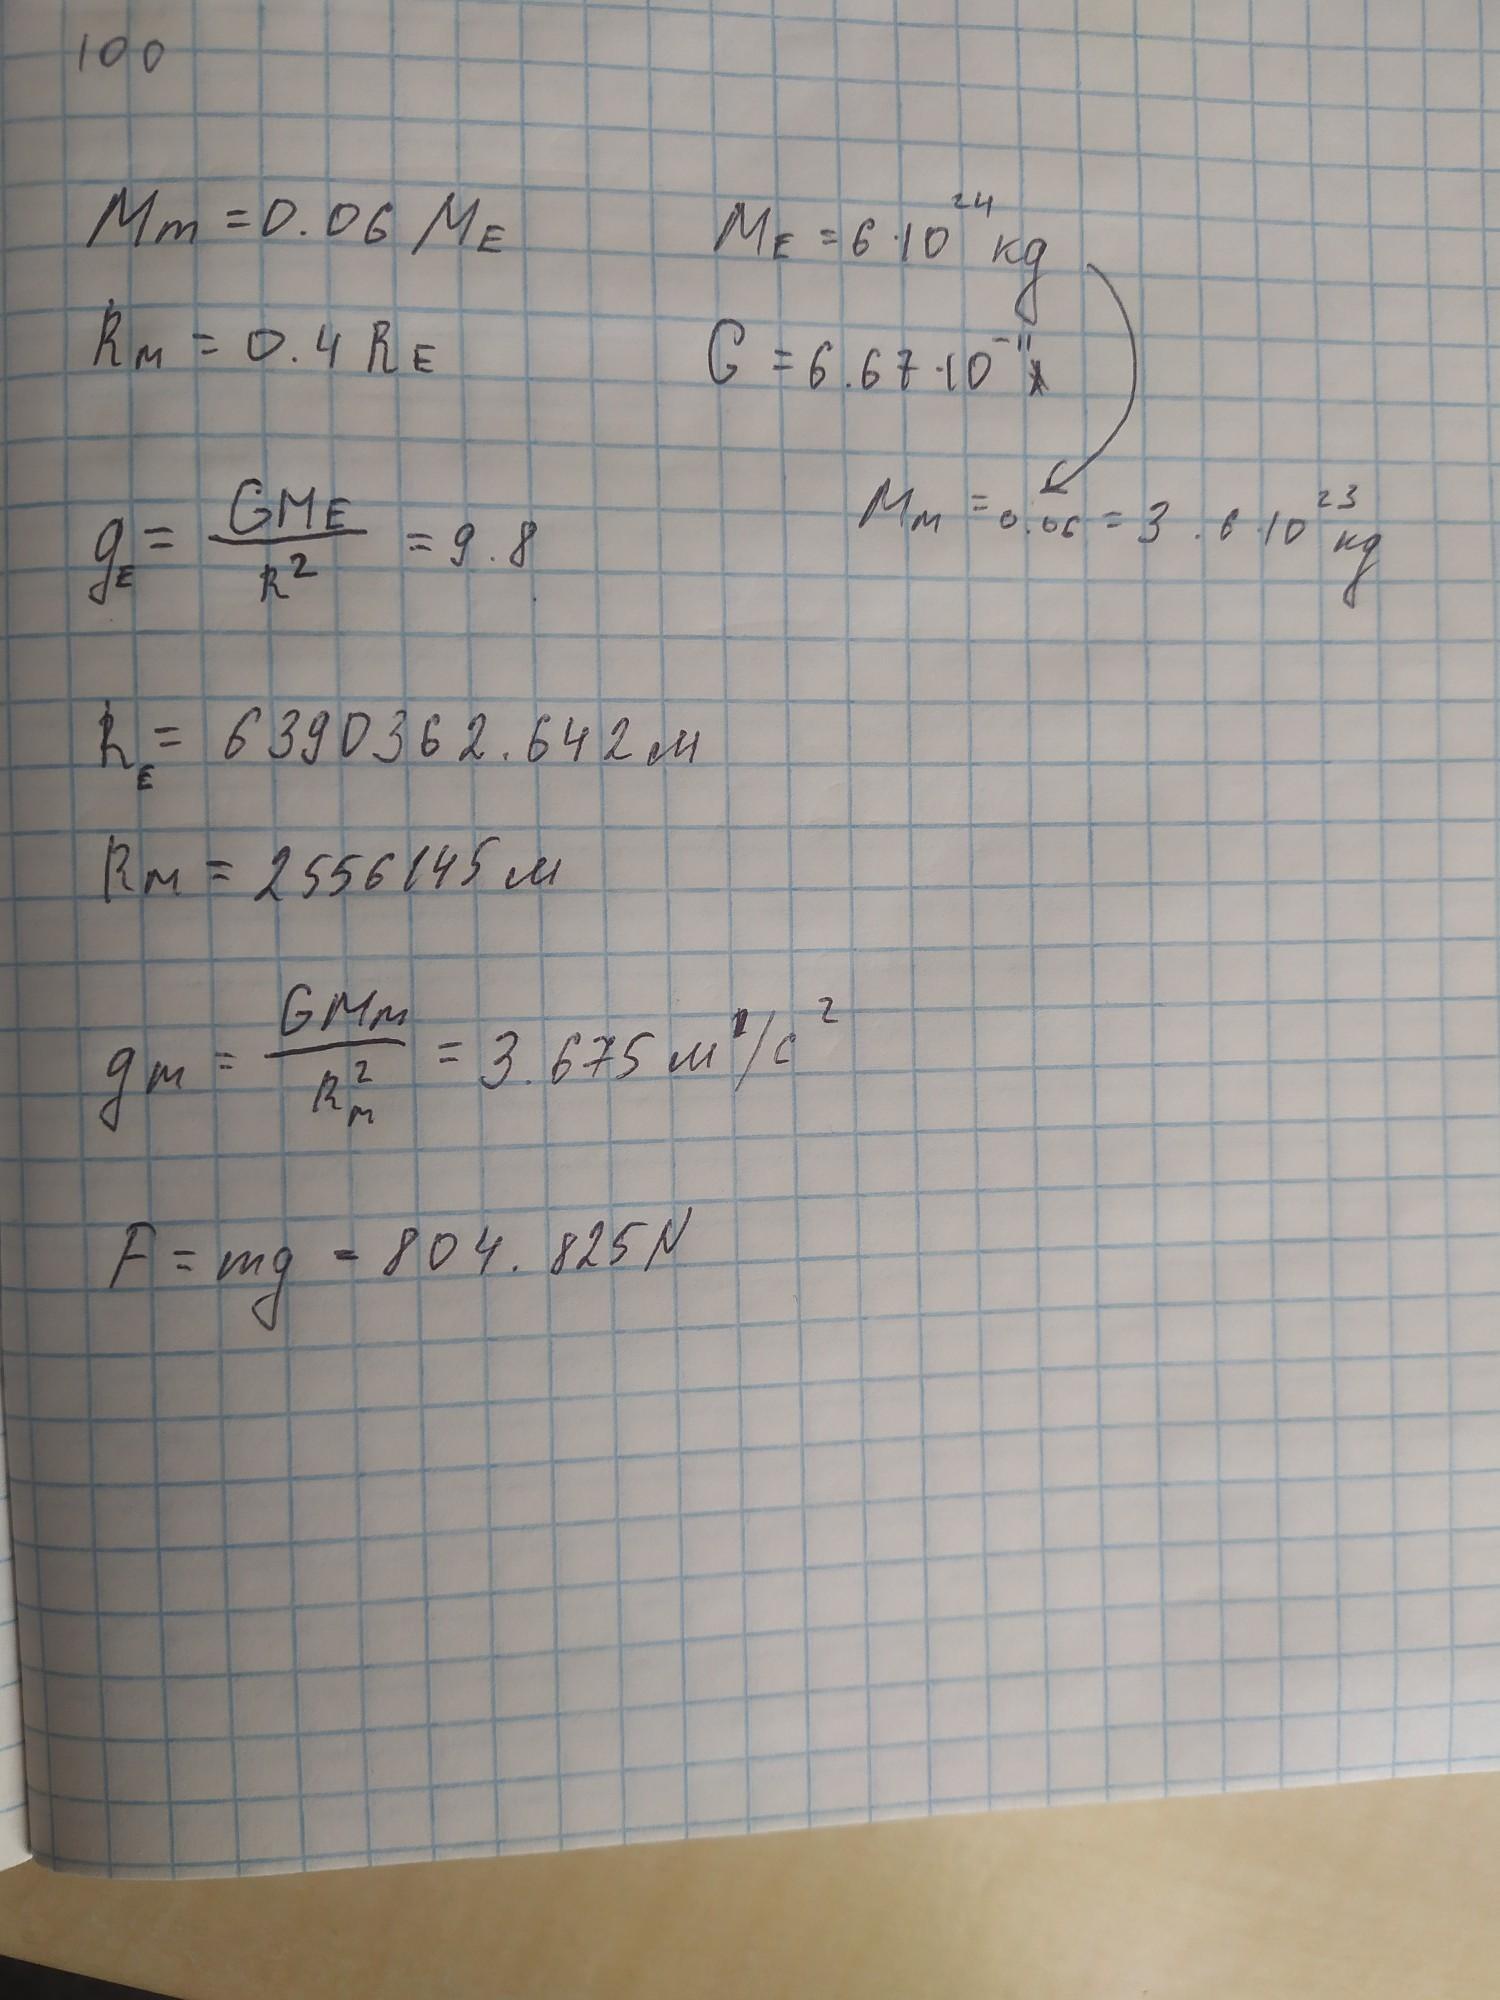 100
Mm = 0.06 ME
ME = 6·10²⁴ kg
RM = 0.4 RE
G = 6.67·10⁻¹¹
gE = GME / R² = 9.8
MM = 0.06 = 3.6·10²³ kg
RE = 6390362.642 м
RM = 2556145 м
gm = GMM / RM² = 3.675 м/с²
F = mg = 804.825 N